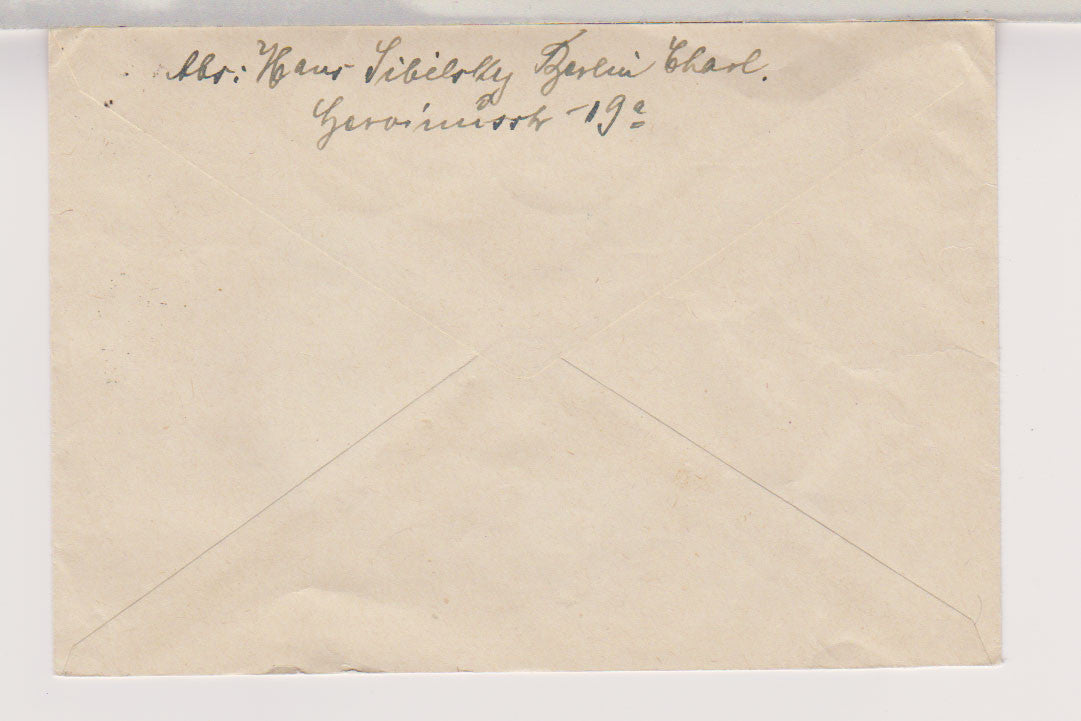 Abs: Hans Sibilsky Berlin Charl.
Gervinusstr 19a